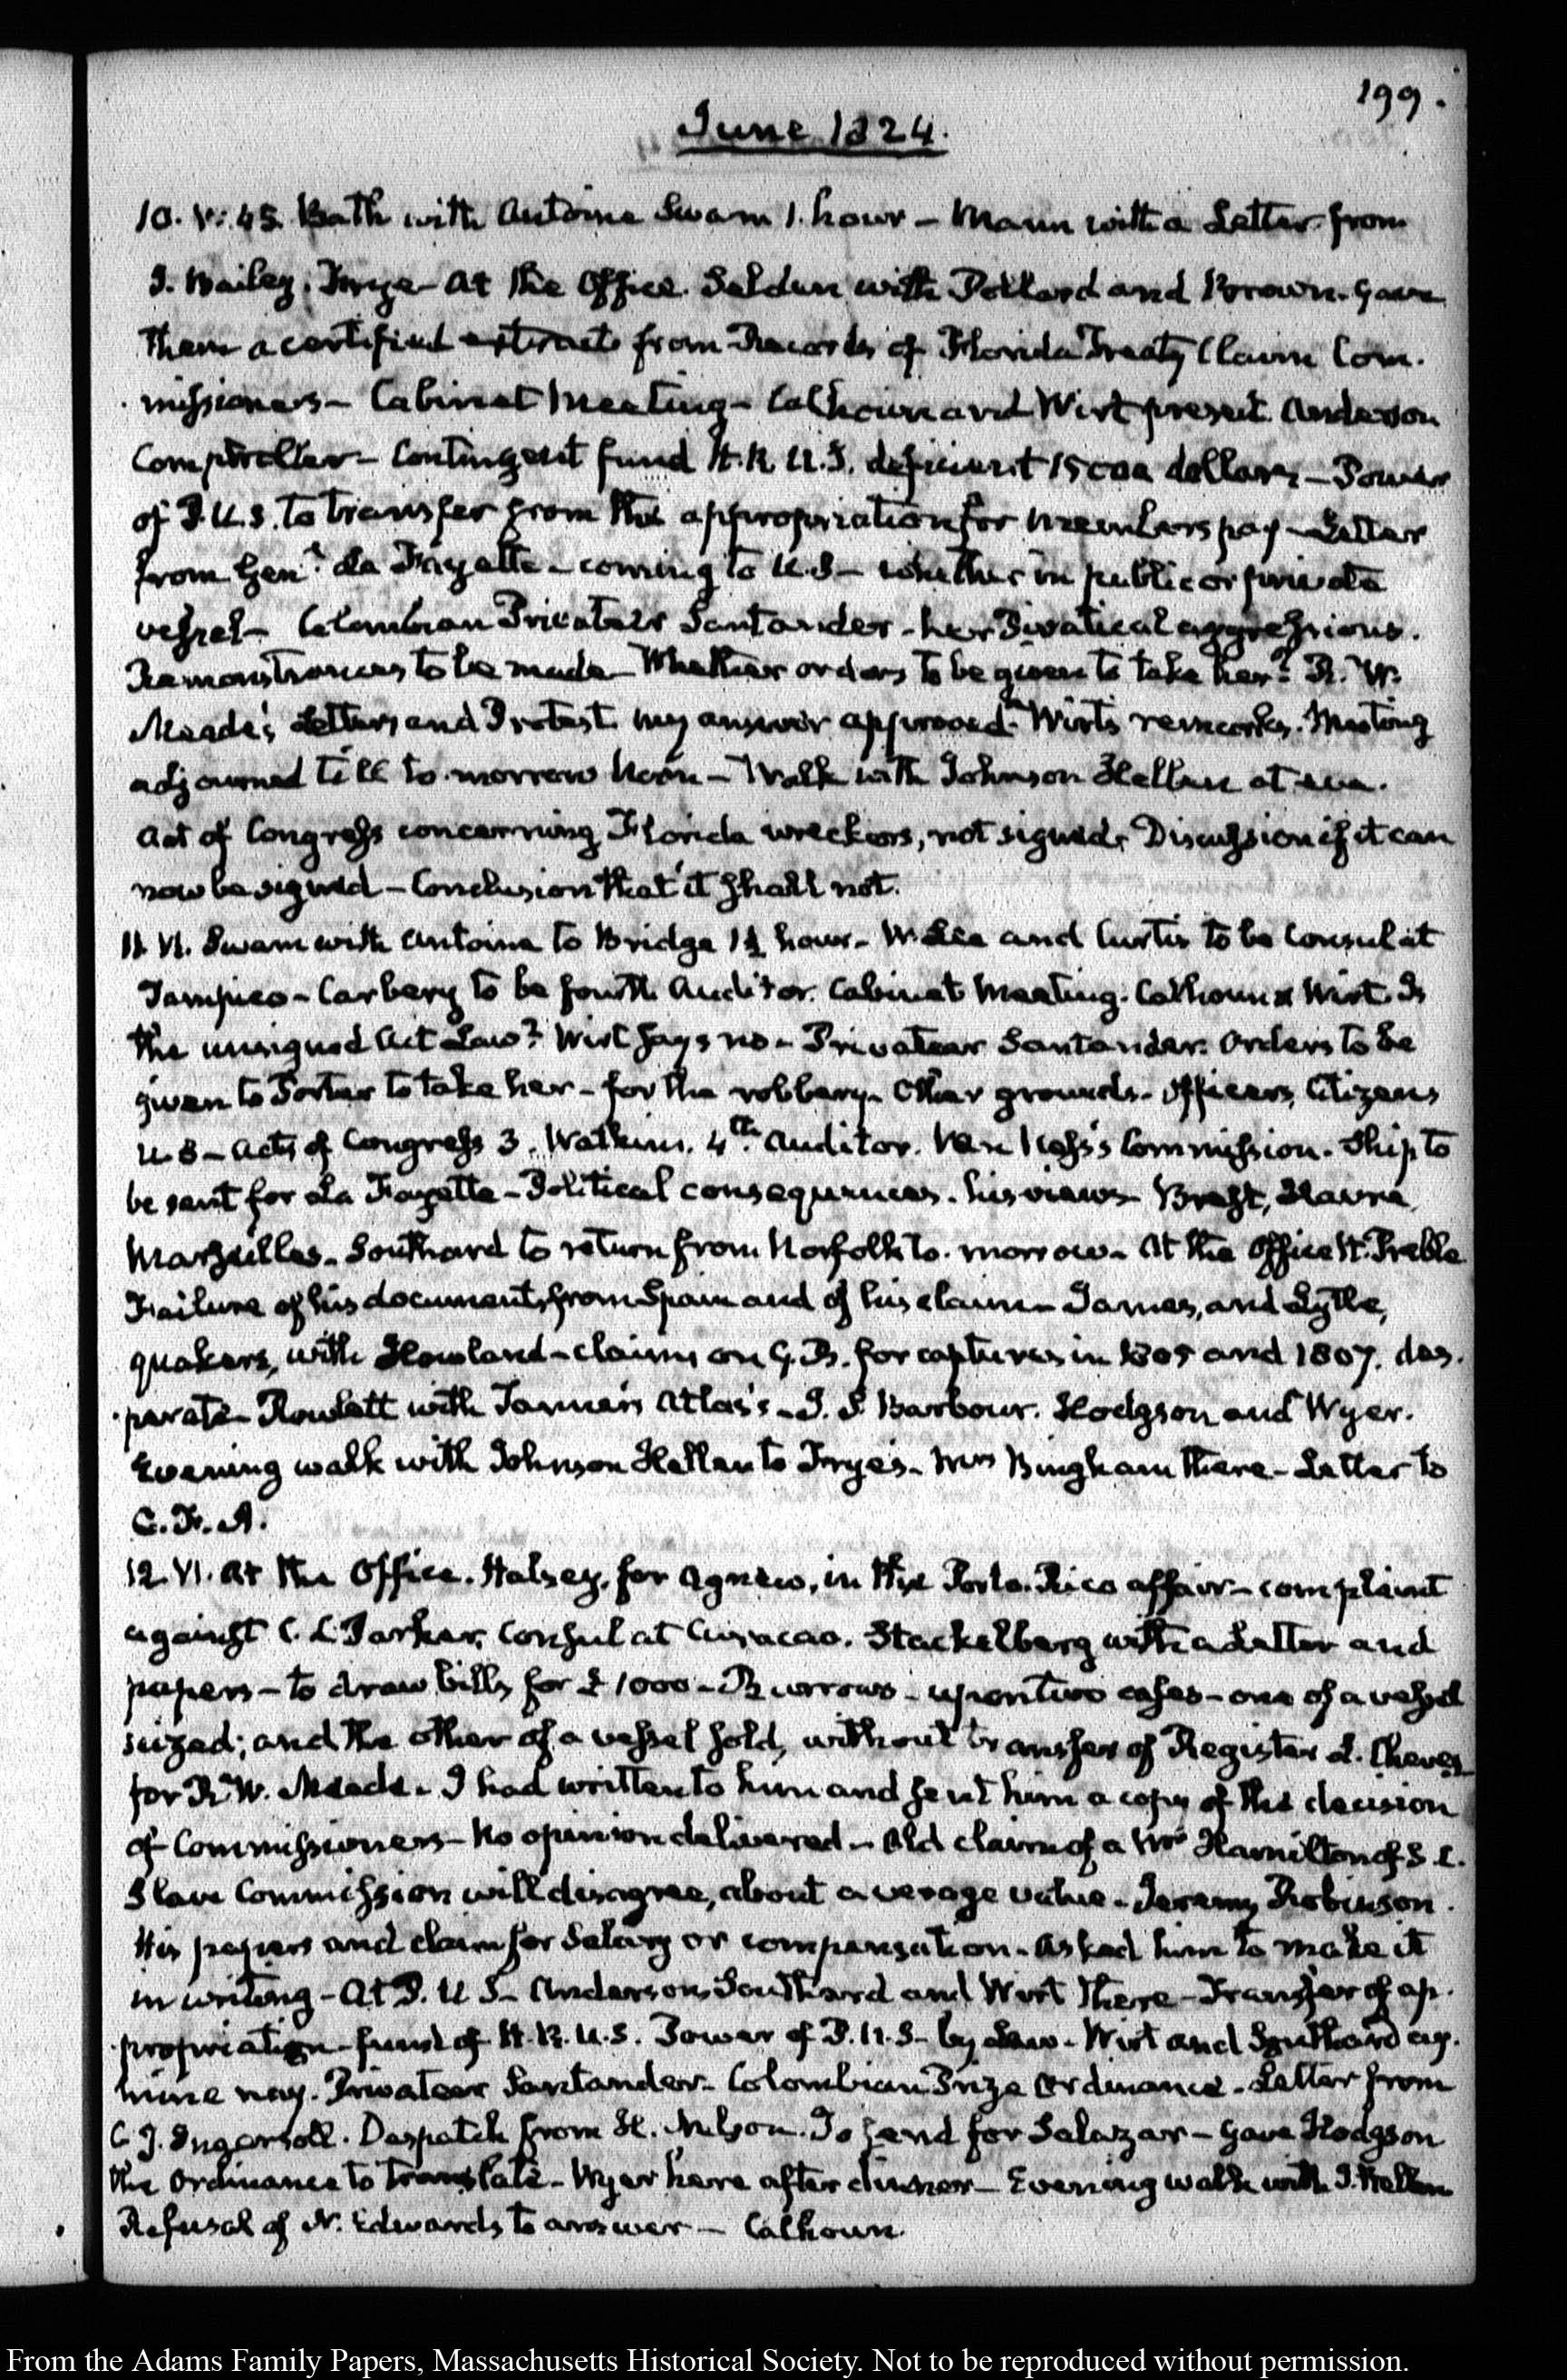 199.
June 1824.
10. V:45. Bath with Antoine Swam 1. hour – Mann with a Letter from
J. Bailey. Frye – At the Office. Selden with Pollard and Brown. Gave
them a certified extract from Records of Florida Treaty Claim Com.
missioners – Cabinet Meeting – Calhoun and Wirt present. Anderson
Comptroller – Contingent fund H.R. U.S. deficient 15000 dollars – Power
of P.U.S. to transfer from the appropriation for members pay – Letter
from Genl. La Fayette – coming to U.S – whether in public or private
vessel – Colombian Privateer Santander – her Piratical aggressions.
Remonstrances to be made – Whether orders to be given to take her? R. W.
Meade's Letters and Protest. my answer approved – Wirt's remarks. Meeting
adjourned till to-morrow Noon – Walk with Johnson Hellen at eve.
Act of Congress concerning Florida wreckers, not signed. Discussion if it can
now be signed – Conclusion that it shall not.
11. VI. Swam with Antoine to Bridge 1½ hour – W. Lee and Curtis to be Consul at
Tampico – Carbery to be fourth Auditor. Cabinet Meeting. Calhoun & Wirt. Is
the unsigned Act Law? Wirt says no – Privateer Santander. Orders to be
given to Porter to take her – for the robbery. Other grounds – Officers, Citizens
U.S – Acts of Congress 3. Watkins. 4th. Auditor. Van Ness's Commission. Ship to
be sent for La Fayette – Political consequences. his views – Brest, Havre,
Marseilles. Southard to return from Norfolk to-morrow – At the Office H. Preble
Failure of his documents from Spain and of his claim – James, and Lytle,
quakers, with Howland – claims on G.B. for captures in 1805 and 1807. des.
perate – Rowlett with Tanner's Atlas's – J. S. Barbour. Hodgson and Wyer.
Evening walk with Johnson Hellen to Frye's – Mrs Bingham there – Letter to
C. F. A.
12. VI. At the Office. Halsey, for Agnew, in the Porto-Rico affair – complaint
against C. L. Parker, Consul at Curacao. Stackelberg with a Letter and
papers – to draw bills for £1000 – Burrows – upon two cases – one of a vessel
seized; and the other of a vessel sold, without transfer of Register L. Cheves
for R. W. Meade. I had written to him and sent him a copy of the decision
of Commissioners – No opinion delivered – Old claim of a Mrs Hamilton of S.C.
Slave Commission will disagree, about average value – Jeremy Robinson.
His papers and claim for Salary or compensation – Asked him to make it
in writing – At P. U S – Anderson, Southard and Wirt there – Transfer of ap.
propriation – fund of H.R. U.S. Power of P.U.S – by Law – Wirt and Southard ay.
mine nay. Privateer Santander – Colombian Prize Ordinance. Letter from
C. J. Ingersoll. Despatch from H. Nelson. To send for Salazar – Gave Hodgson
the Ordinance to translate – Wyer here after dinner – Evening walk with J. Hellen
Refusal of N. Edwards to answer – Calhoun.
From the Adams Family Papers, Massachusetts Historical Society. Not to be reproduced without permission.